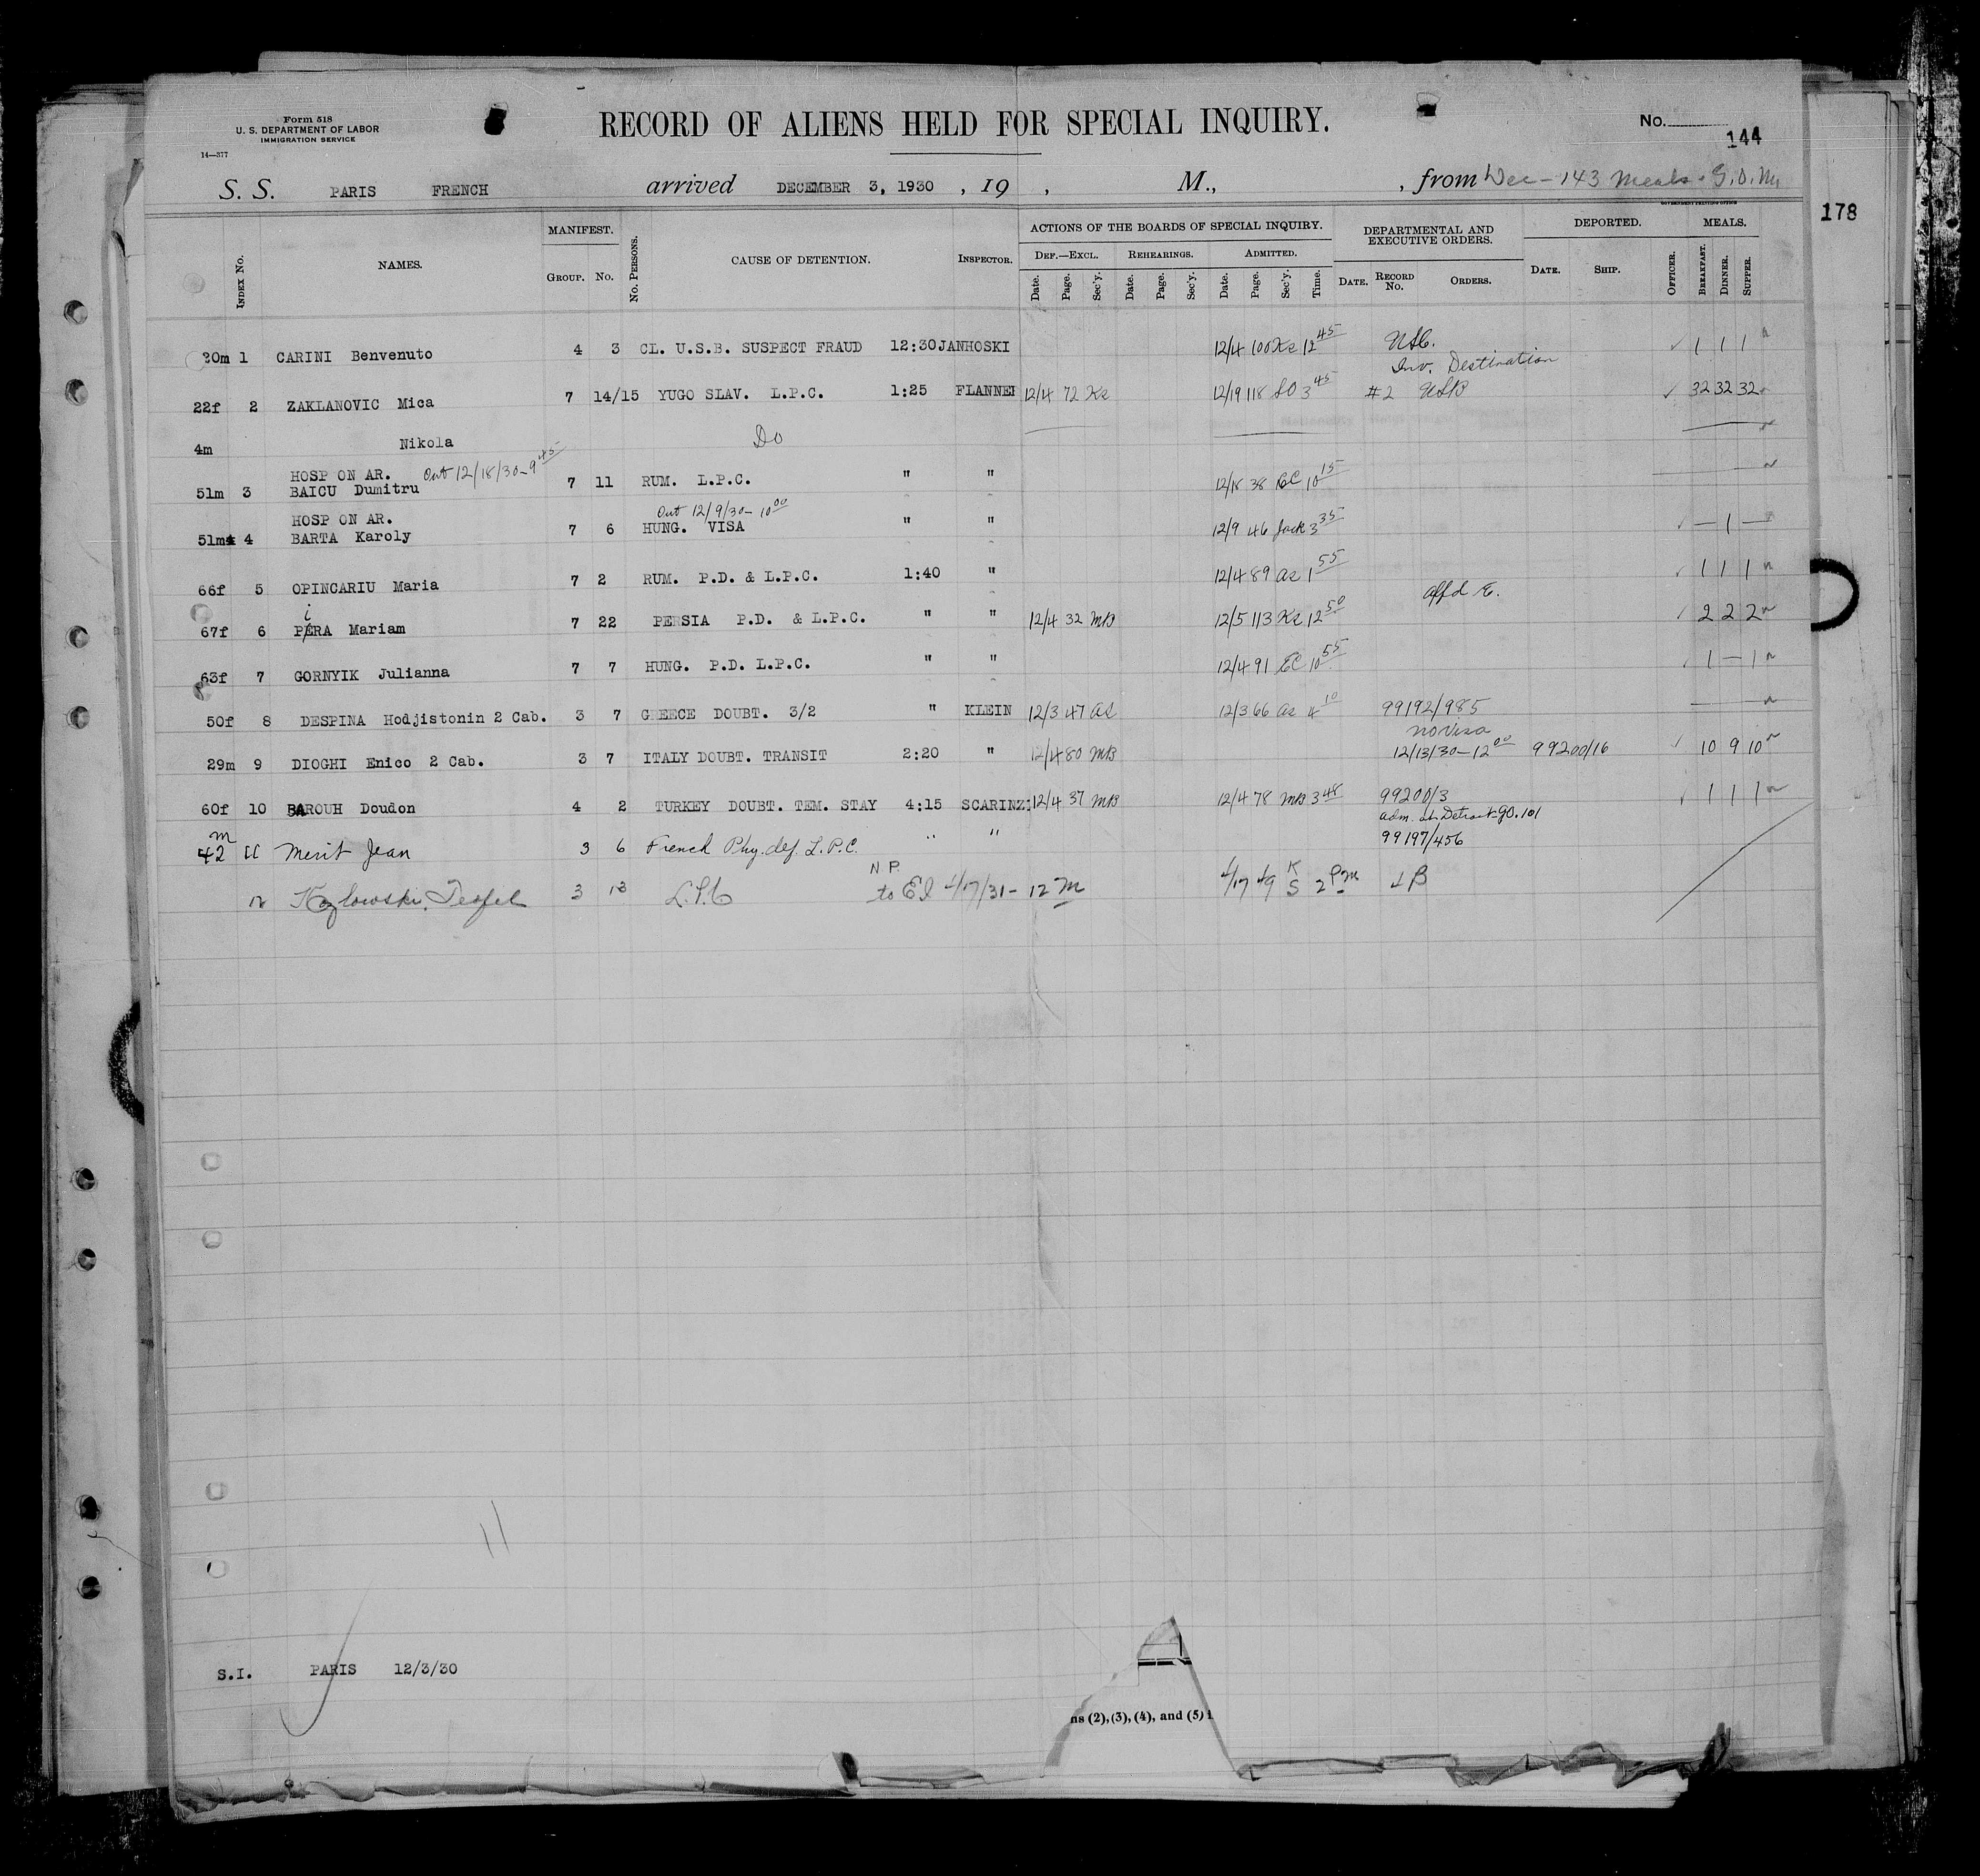 Form 518
U. S. DEPARTMENT OF LABOR
IMMIGRATION SERVICE
14—377
RECORD OF ALIENS HELD FOR SPECIAL INQUIRY.
No.
144
178
S. S. PARIS FRENCH arrived DECEMBER 3, 1930 , 19 , M., , from Dec - 143 Meals - G.O.M.
GOVERNMENT PRINTING OFFICE
INDEX No. NAMES. MANIFEST. GROUP. No. No. PERSONS. CAUSE OF DETENTION. INSPECTOR.
ACTIONS OF THE BOARDS OF SPECIAL INQUIRY. DEF.—EXCL. Date. Page. Sec'y. REHEARINGS. Date. Page. Sec'y. ADMITTED. Date. Page. Sec'y. Time.
DEPARTMENTAL AND EXECUTIVE ORDERS. DATE. RECORD No. ORDERS.
DEPORTED. DATE. SHIP. OFFICER. MEALS. BREAKFAST. DINNER. SUPPER.
30m 1 CARINI Benvenuto 4 3 CL. U.S.B. SUSPECT FRAUD 12:30 JANHOSKI 12/4 100 Ke 12 45 1 1 1
Inv. Destination
22f 2 ZAKLANOVIC Mica 7 14/15 YUGO SLAV. L.P.C. 1:25 FLANNER 12/4 72 Ke 12/19 118 SO 3 45 #2 32 32 32
4m Nikola Do
HOSP ON AR. Out 12/18/30 - 9 45
51m 3 BAICU Dumitru 7 11 RUM. L.P.C. " " 12/18 38 EC 10 15
HOSP ON AR. Out 12/9/30 - 10 00
51m 4 BARTA Karoly 7 6 HUNG. VISA " " 12/9 46 Jack 3 35 — 1 —
66f 5 OPINCARIU Maria 7 2 RUM. P.D. & L.P.C. 1:40 " 12/4 89 as 1 55 1 1 1
affd
67f 6 PiRA Mariam 7 22 PERSIA P.D. & L.P.C. " " 12/4 32 MB 12/5 113 Ke 12 50 2 2 2
63f 7 GORNYIK Julianna 7 7 HUNG. P.D. L.P.C. " " 12/4 91 EC 10 55 1 — 1
50f 8 DESPINA Hodjistonin 2 Cab. 3 7 GREECE DOUBT. 3/2 " KLEIN 12/3 47 as 12/3 66 as 4 10 99192/985
no visa
29m 9 DIOGHI Enico 2 Cab. 3 7 ITALY DOUBT. TRANSIT 2:20 " 12/4 80 MB 12/13/30 - 12 00 99200/16 10 9 10
60f 10 BAROUH Doudon 4 2 TURKEY DOUBT. TEM. STAY 4:15 SCARINZI 12/4 37 MB 12/4 78 MB 3 48 99200/3 1 1 1
adm. at Detroit 90.101
42 m 11 Merit Jean 3 6 French Phy. def L.P.C. " " 99197/456
N P.
12 Kozlowski, Teofel 3 13 L.P.C to EI 4/17/31 - 12 M 4/17 49 K S 2 PM
11
S.I. PARIS 12/3/30
ns (2), (3), (4), and (5) i